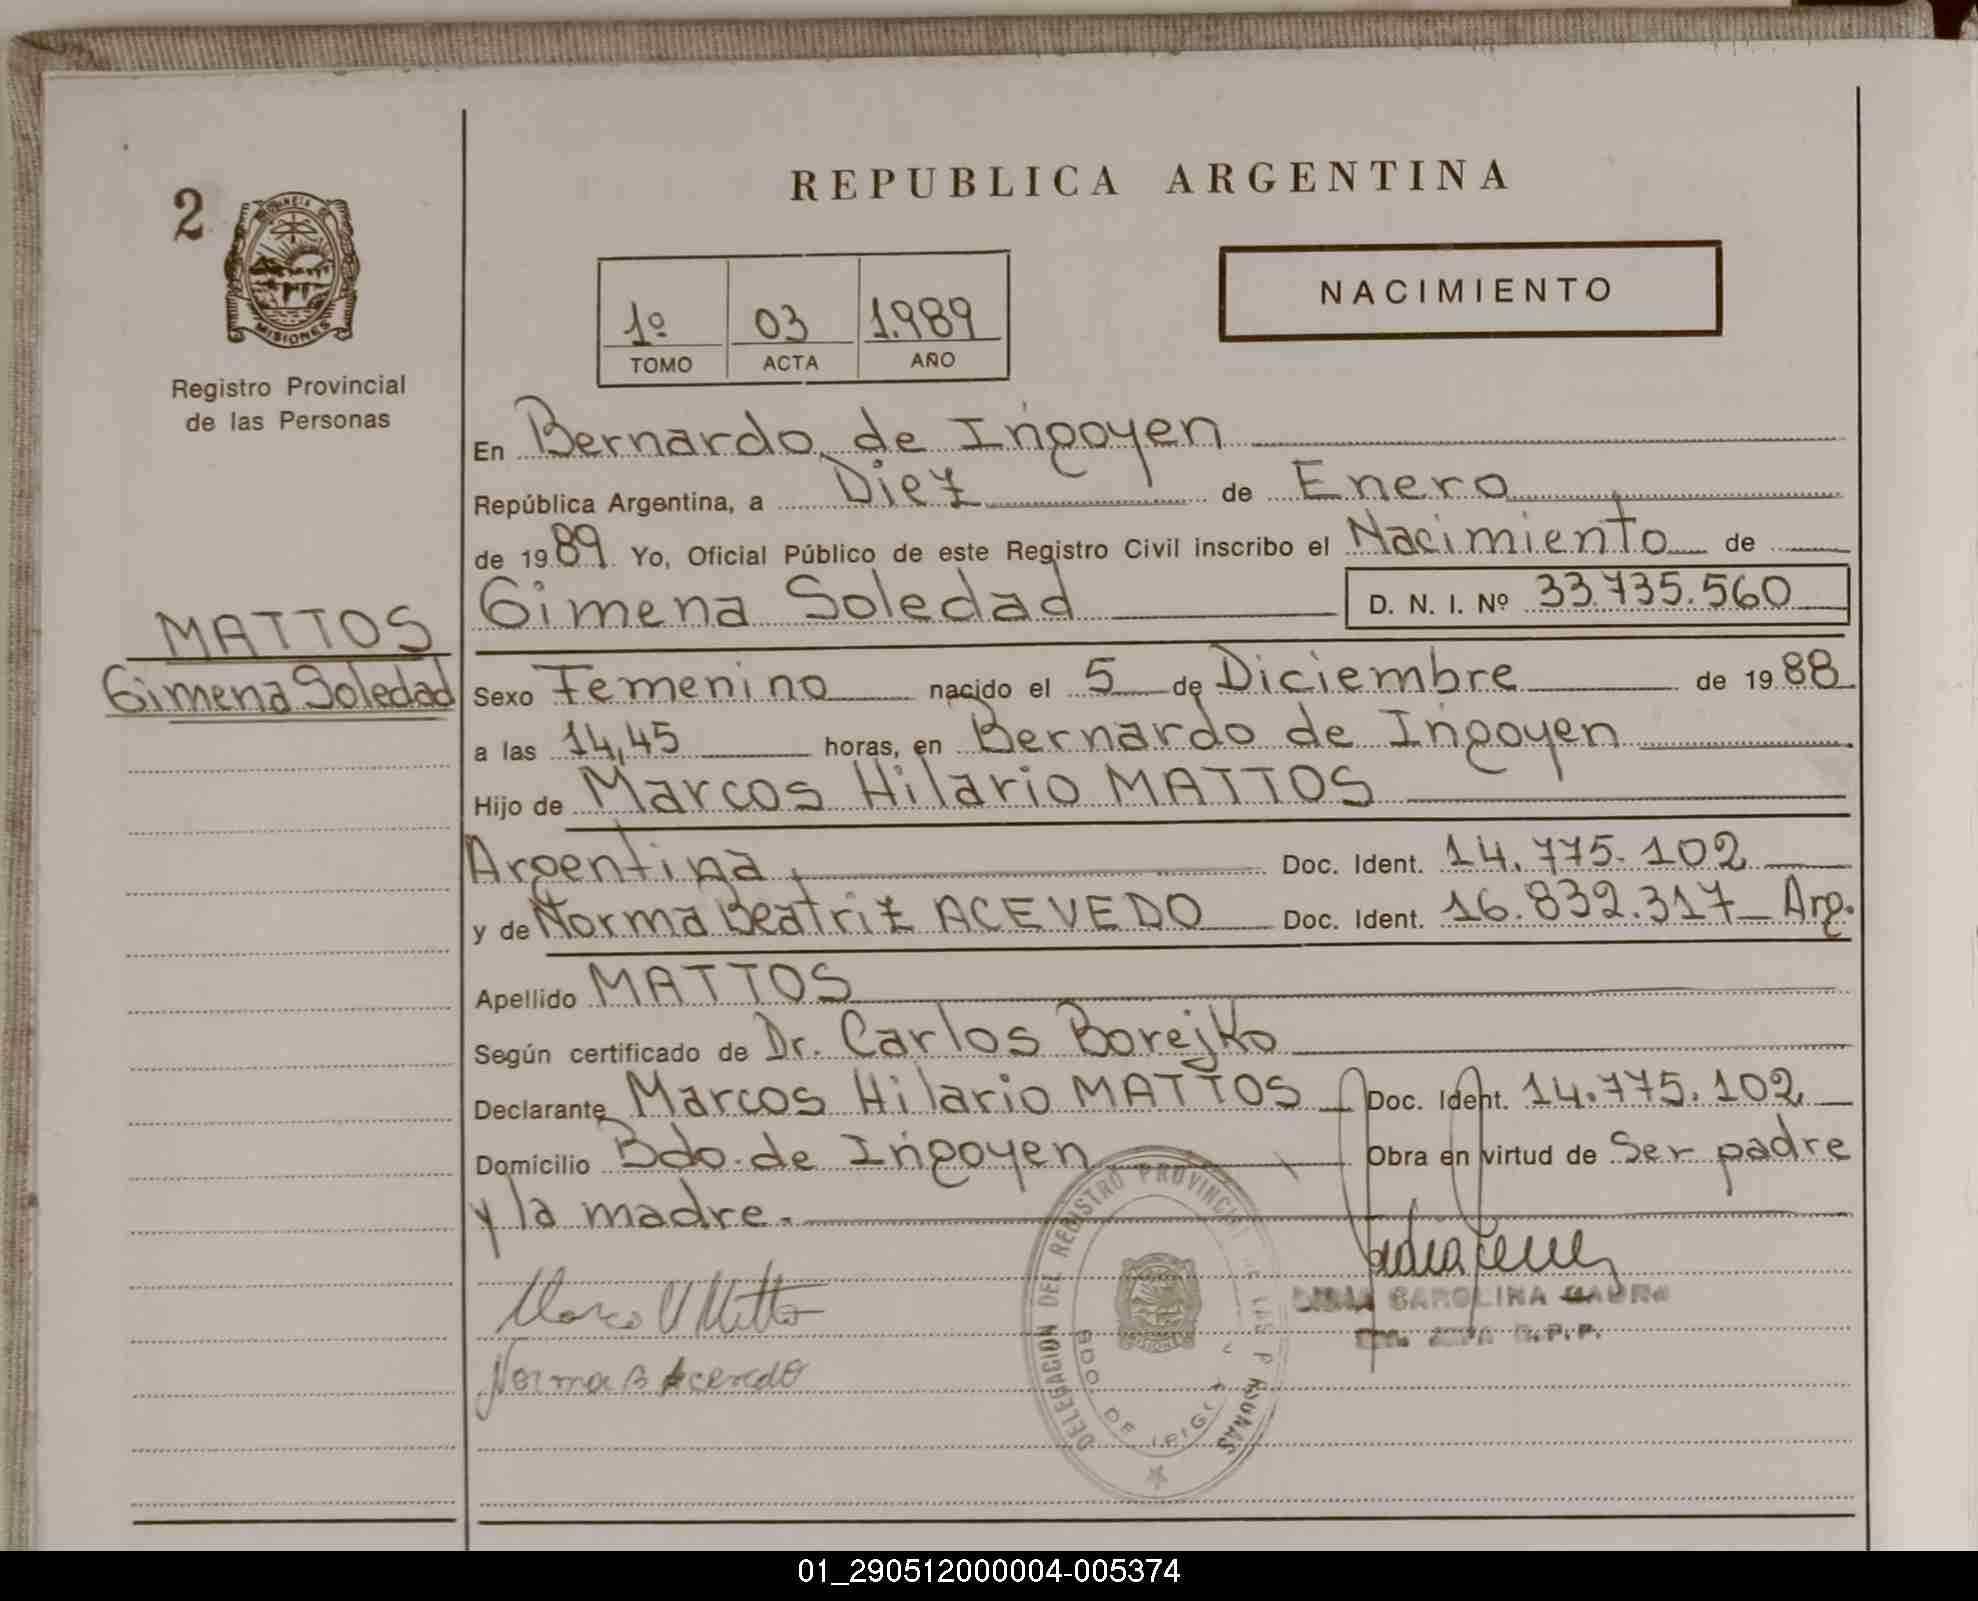 REPUBLICA ARGENTINA
2
PROVINCIA DE
MISIONES
Registro Provincial
de las Personas
1º 03 1.989
TOMO ACTA AÑO
NACIMIENTO
En Bernardo de Irigoyen
República Argentina, a Diez de Enero
de 1989 Yo, Oficial Público de este Registro Civil inscribo el Nacimiento de
Gimena Soledad D. N. I. Nº 33.735.560
MATTOS
Gimena Soledad
Sexo Femenino nacido el 5 de Diciembre de 1988
a las 14,45 horas, en Bernardo de Irigoyen
Hijo de Marcos Hilario MATTOS
Argentina, Doc. Ident. 14.775.102
y de Norma Beatriz ACEVEDO Doc. Ident. 16.832.317 Arg.
Apellido MATTOS
Según certificado de Dr. Carlos Borejko
Declarante Marcos Hilario MATTOS Doc. Ident. 14.775.102
Domicilio Bdo. de Irigoyen Obra en virtud de Ser padre
y la madre.
DELEGACION DEL REGISTRO PROVINCIAL DE LAS PERSONAS
BDO. DE IRIGOYEN
CAROLINA
R.P.P.
Norma B Acevedo
01_290512000004-005374